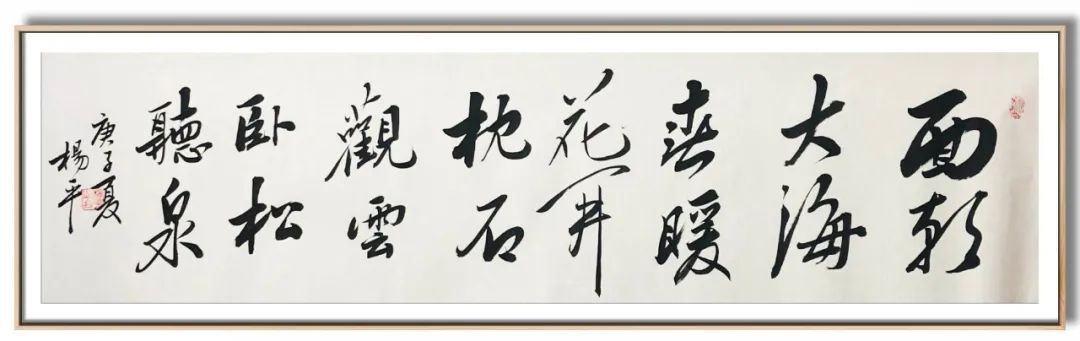 面朝
大海
春暖
花開
枕石
觀雲
卧松
聽泉
庚子夏
楊平